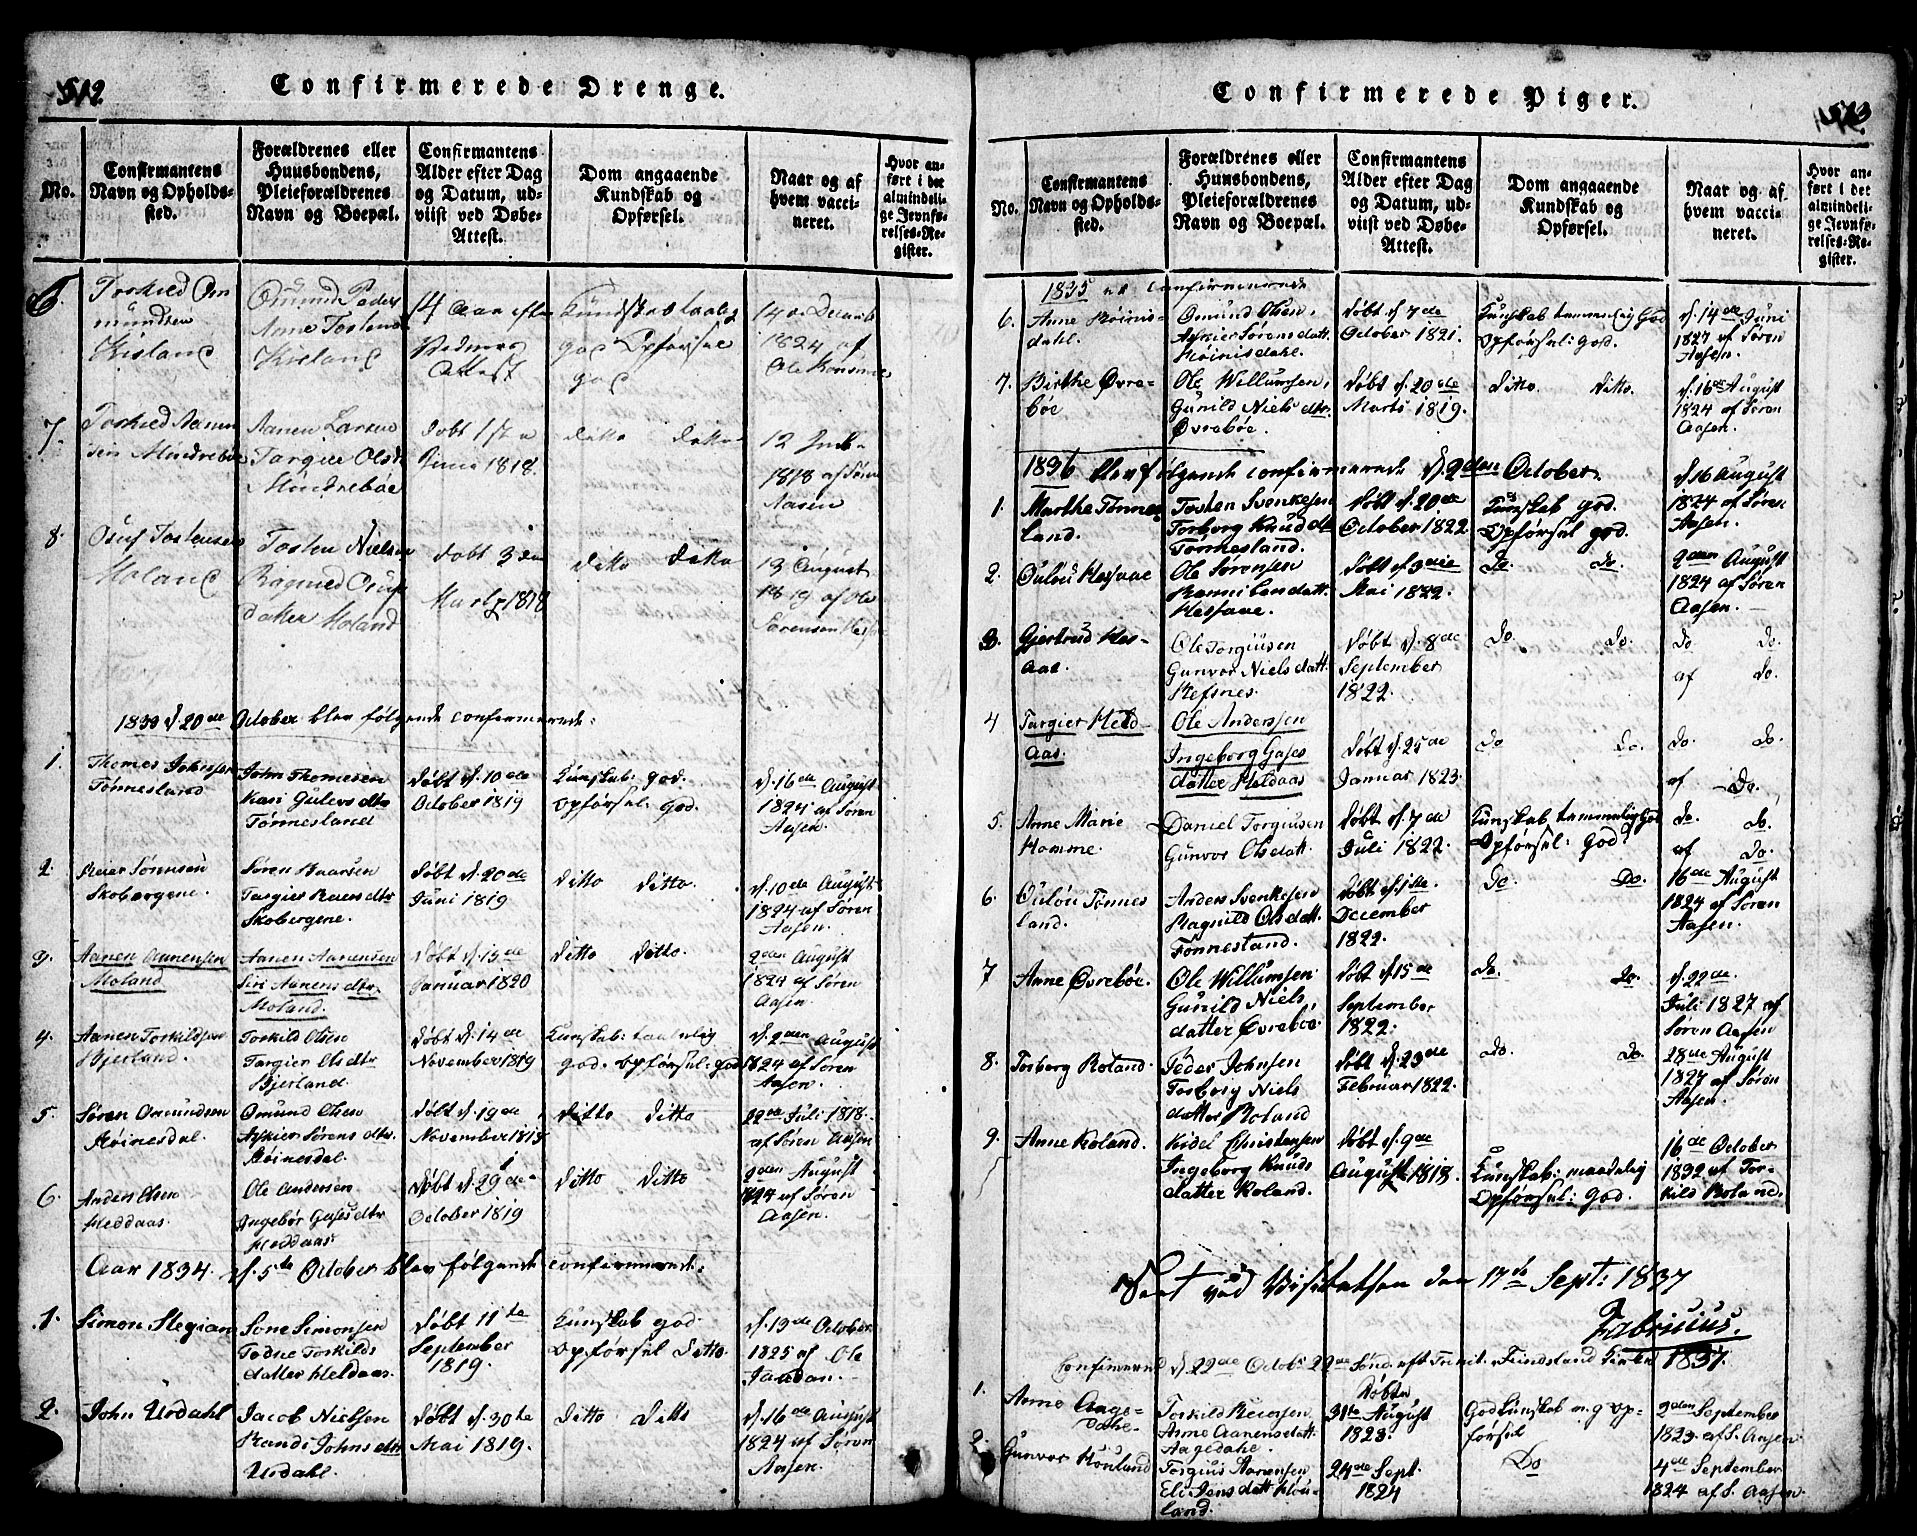 512.
Confirmerede Drenge.
No.
Confirmantens
Navn og Opholds-
sted.
Forældrenes eller
Huusbondens,
Pleieforældrenes
Navn og Boepæl.
Confirmantens
Alder efter Dag
og Datum, ud-
viist ved Døbe-
Attest.
Dom angaaende
Kundskab og
Opførsel.
Naar og af
hvem vacci-
neret.
Hvor an-
ført i det
almindeli-
ge Jevnfø-
relses-Re-
gister.
6.
Torkild Om
mundsen
Kisland
Omund Peders
Anne Tostens
Kisland
14 Aar efter
Attest
Kundskab
god Opførsel
god
14de Decemb
1824 af
Ole
7.
Torkild Aanen
sen Mindreboe
Aanen Larsen
Targier Olsdt
Mindreboe
døbt 1ste
Juni 1818.
ditto ditto
12
1818 af Søren
Aasen
8.
Osuf Tostensen
Moland
Tosten Nielsen
Ragnild Osufs
datter Moland
døbt 3den
Marts 1818
ditto ditto
13 August
1819 af Ole
Sørensen
1833 d. 20de October blev følgende confirmerede:
1.
Thomes Johnsen
Tønnesland
John Thomesen
Kari Gulevs dtr
Tønnesland
døbt d. 10de
October 1819
Kunskab: god.
opførsel: god.
d. 16de August
1824 af Søren
Aasen.
2.
Reier Sørensen
Skobergene.
Søren Knarsen
Targier Reiers dtr
Skobergene.
døbt d. 20de
Juni 1819
ditto ditto.
d. 10de August
1824 af Søren
Aasen.
3.
Aanen Aanensen
Moland
Aanen Aanensen
Siri Aanens dtr.
Moland.
døbt d. 15de
Januar 1820
ditto ditto.
2den August
1824 af Søren
Aasen.
4.
Aanen Torkildsen
Bjerland.
Torkild Olsen
Targier Ols dtr
Bjerland.
døbt d. 14de
November 1819
Kunskab: taalelig
god. opførsel: god
d. 2den August
1824 af Søren
Aasen.
5.
Søren Omundsen
Røinesdal.
Omund Olsen
Askier Sørens dtr.
Røinesdal.
døbt d. 19de
November 1819
ditto ditto
22de Juli 1818.
af Søren Aasen.
6.
Anders Olsen
Heddaas.
Ole Andersen
Ingebør Gases dtr
Heddaas.
døbt d. 29de
October 1819
ditto ditto
2den August
1824 af Søren
Aasen.
Aar 1834. d. 5te October blev følgende confirmerede:
1.
Simon Stegian
Sone Simonsen
Todne Torkilds
datter Heldaas.
døbt 11te
September
1819.
Kunskab god.
opførsel ditto.
d. 19de October
1825 af Ole
2.
John Urdahl
Jacob Nielsen
Randi Johns dtr
Urdahl.
døbt d. 30te
Mai 1819.
ditto ditto
d. 16de August
1824 af Søren
Aasen.
Confirmerede Piger.
513
No.
Confirmantens
Navn og Opholds-
sted.
Forældrenes eller
Huusbondens,
Pleieforældrenes
Navn og Boepæl.
Confirmantens
Alder efter Dag
og Datum, ud-
viist ved Døbe-
Attest.
Dom angaaende
Kundskab og
Opførsel.
Naar og af
hvem vacci-
neret.
Hvor an-
ført i det
almindeli-
ge Jevnfø-
relses-Re-
gister.
1835 confirmerede
6.
Anne Røinis-
dahl.
Omund Olsen,
Askier Sørens datt.
Røinisdahl.
døbt d. 7de
October 1821.
Kunskab tammelig God
Opførsel: god.
d. 14de Juni
1827 af Søren
Aasen.
7.
Birthe Øvre-
bøe
Ole Willumsen,
Gunild Niels dtr.
Øvrebøe.
døbt d. 20de
Marts 1819.
ditto. ditto.
d. 16de August
1824 af Søren
Aasen.
1836 blev følgende confirmerede d. 2den October.
1.
Marthe Tønnes
land.
Tosten Svenkesen
Torborg Knud dtr
Tønnesland.
døbt d. 20de
October 1822.
Kunskab god.
Opførsel god.
d 16 August
1824 af Søren
Aasen.
2.
Oulou Hesaae
Ole Sørensen
datt.
Hesaae.
døbt d. 3die
Mai 1822.
Do. Do.
2den August
1824 af Søren
Aasen.
3.
Gjertrud Hes-
aae.
Ole Torgiusen
Gunvor Niels datt.
Refsnes.
døbt d. 8de
September
1822.
Do. Do.
Do. Do.
af Do.
4
Targier Held-
aas.
Ole Anderssen
Ingeborg Gases
datter Heldaas
døbt d. 25de
Januar 1823.
Do Do.
Do. Do.
af Do.
5.
Anne Marie
Homme.
Daniel Torgiusen
Gunvor Olsdatt.
døbt d. 7de
Juli 1822.
Kunskab tammelig God
Opførsel: God?
Do. Do.
af Do.
6.
Oulou Tønnes
land.
Anders Svenkesen
Ragnild Olsdatt.
Tønnesland.
døbt d. 1ste.
December
1822.
Do. Do.
16de August
1824 af Søren
Aasen.
7
Anne Øvrebøe.
Ole Willumsen
Gunild Niels,
datter Øvrebøe.
døbt d. 15de
September
1822.
Do. Do.
d. 22de.
Juli 1827 af
Søren Aasen
8.
Torberg Roland.
Peder Johnsen
Torborg Niels
datter Roland
døbt d. 23de
Februar 1822.
Do. Do.
28de August
1827 af Søren
Aasen.
9.
Anne Roland.
Kidel Christensen
Ingeborg Knuds
datter Roland.
døbt d. 9de
August 1818.
Kunskab: maadelig
Opførsel: God.
16de October
1832 af Tor-
kild Roland.
Seet ved Visitatsen den 17de Sept: 1837
Fabricius.
Confirmered d. 22de Octobr 22de Sønd. eft Trinit. i Finds­land Kirke 1837.
1.
Anne Aage-
dahl.
Torkild Reiersen,
Anne Aanens datt.
Aagedahl.
Døbte
31te August
1823.
God Kunskab m. g op-
førsel
2den September
1823. af S. Aasen.
2.
Gunvor Kouland
Torgius Aanensen
Eli Jens datt Kou-
land.
24de Sept.
1824
Do
4de September
1824 af S. Aasen.